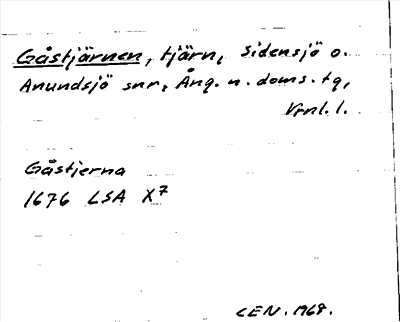 Gåstjärnen, tjärn, Sidensjö o.
Anundsjö snr, Ång. n. doms. tg,
Vrnl. l.
Gåstjerna
1676 LSA X7
CEN. 1968.